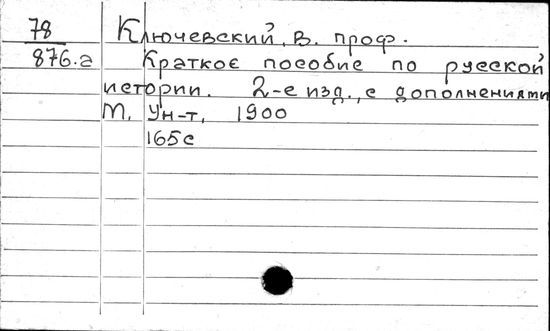 78 Ключевский, В. проф.
876.а Краткое пособие по русской
истории. 2-е изд., с дополнениями
М, Ун-т, 1900
165с